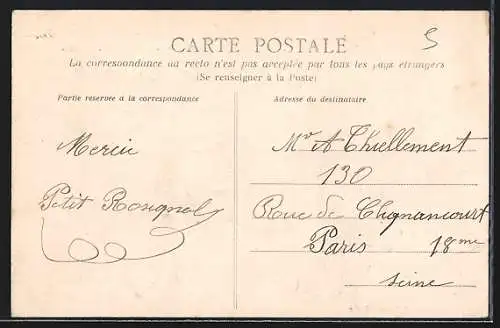 CARTE POSTALE
La correspondance au recto n'est pas acceptée par tous les pays étrangers
(Se renseigner à la Poste)
Partie reservee a la correspondance
Adresse du destinataire
Merci
Petit Rosignol
Mr A Thiellement
130
Rue de Clignancourt
Paris 18me
Seine